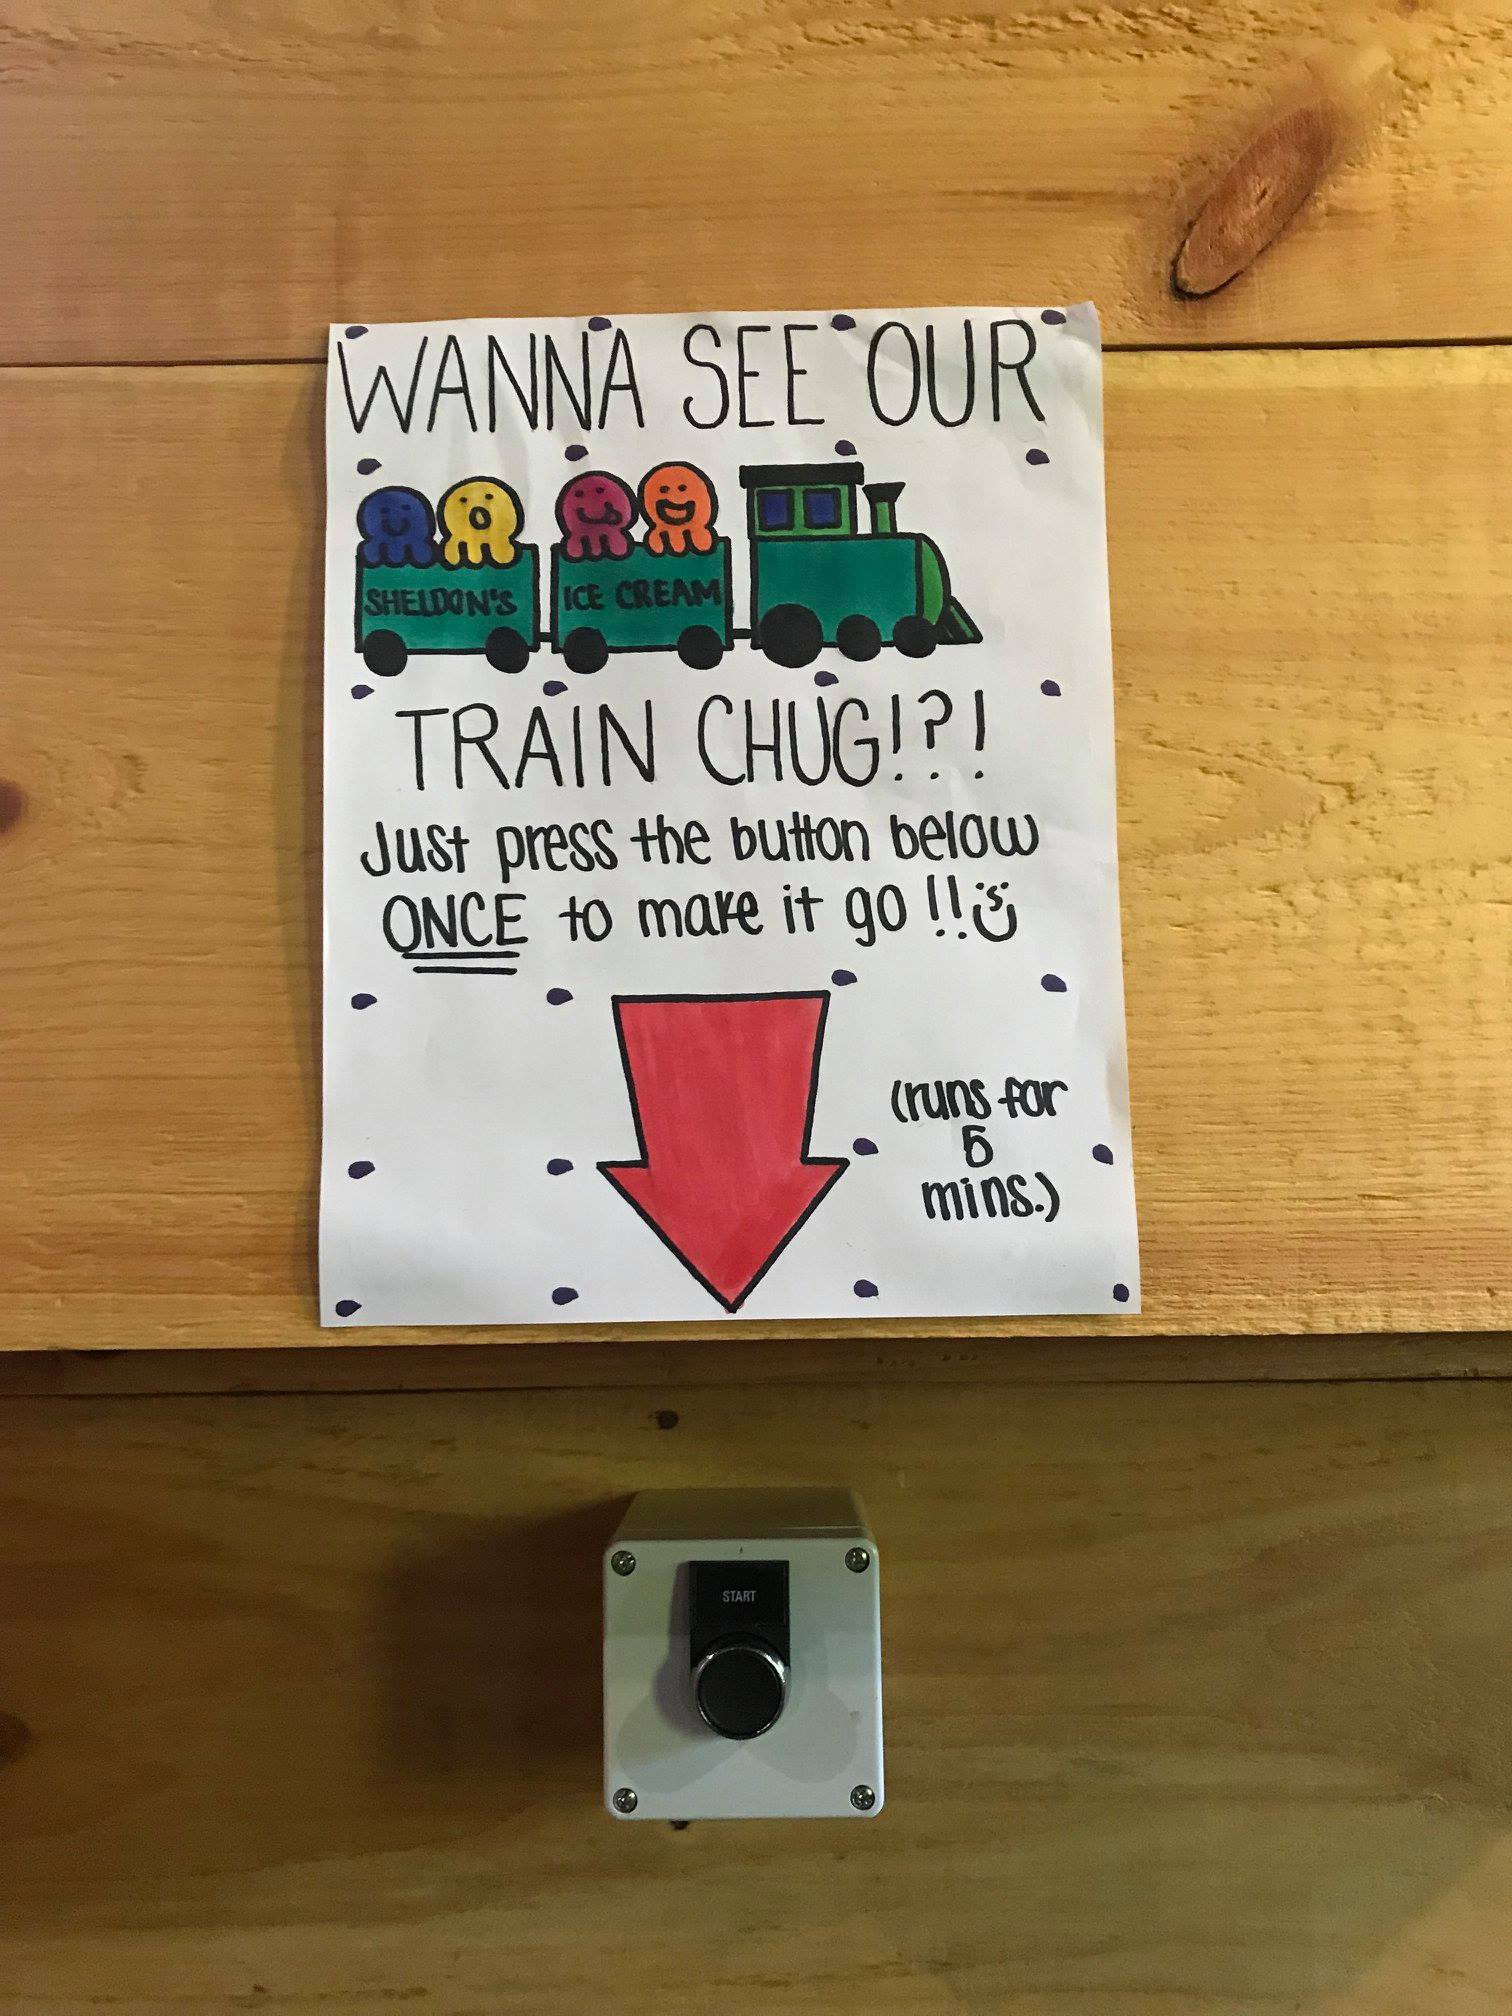 WANNA SEE OUR
SHELDON'S ICE CREAM
TRAIN CHUG!?!
Just press the button below
ONCE to make it go!!
(runs for
5
mins.)
START